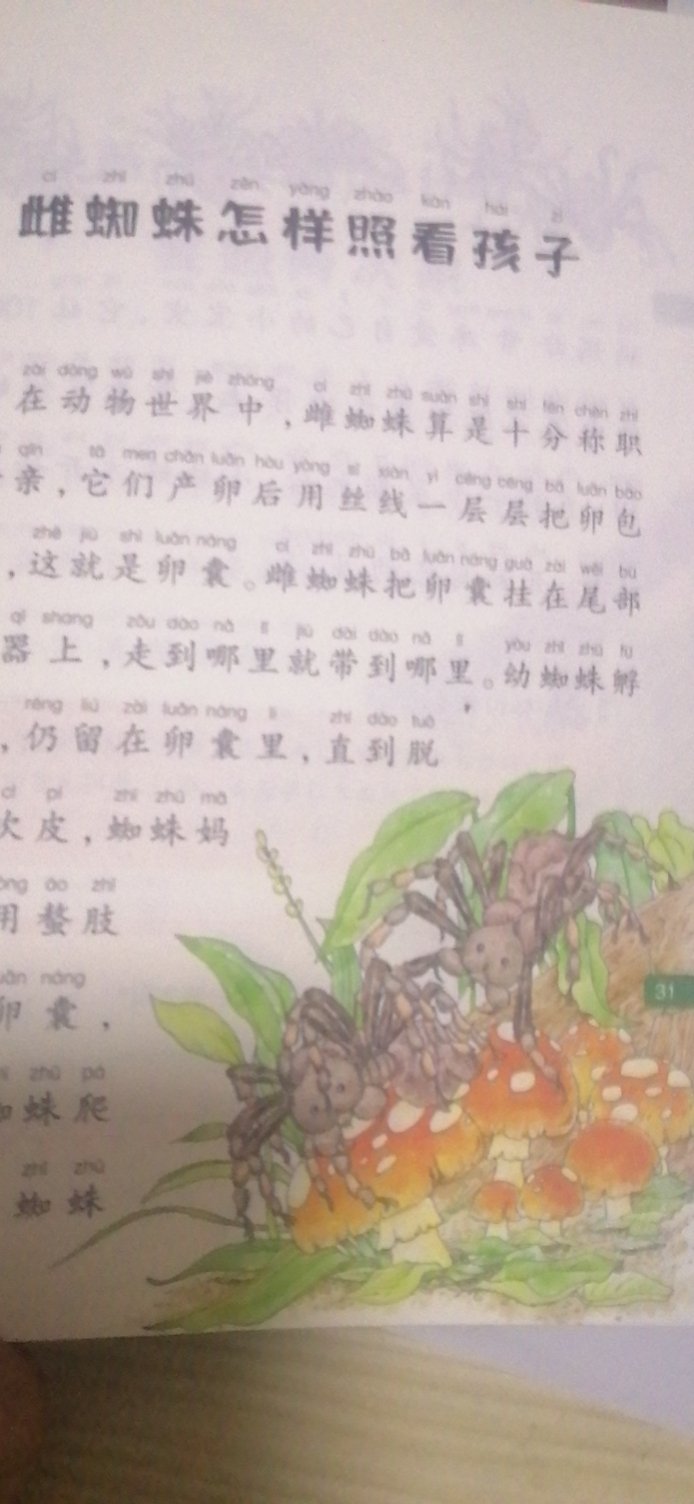 cí zhī zhū zěn yàng zhào kàn hái zi
雌蜘蛛怎样照看孩子
zài dòng wù shì jiè zhōng cí zhī zhū suàn shì shí fēn chèn zhí
在动物世界中，雌蜘蛛算是十分称职
qīn tā men chǎn luǎn hòu yòng sī xiàn yì céng céng bǎ luǎn bāo
亲，它们产卵后用丝线一层层把卵包
zhè jiù shì luǎn náng cí zhī zhū bǎ luǎn náng guà zài wěi bù
，这就是卵囊。雌蜘蛛把卵囊挂在尾部
qì shang zǒu dào nǎ lǐ jiù dài dào nǎ lǐ yòu zhī zhū fū
器上，走到哪里就带到哪里。幼蜘蛛孵
réng liú zài luǎn náng lǐ zhí dào tuō
，仍留在卵囊里，直到脱
cì pí zhī zhū mā
次皮，蜘蛛妈
yòng áo zhī
用螯肢
luǎn náng
卵囊，
zhū pá
蛛爬
zhī zhū
蜘蛛
31